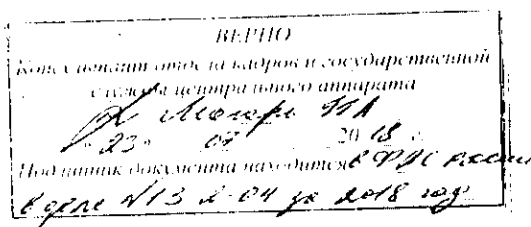 ВЕРНО
Консультант отдела кадров и государственной
службы центрального аппарата
"23" 07 2018 г.
Подлинник документа находится в ФДС России
в деле №13 2-04 за 2018 год